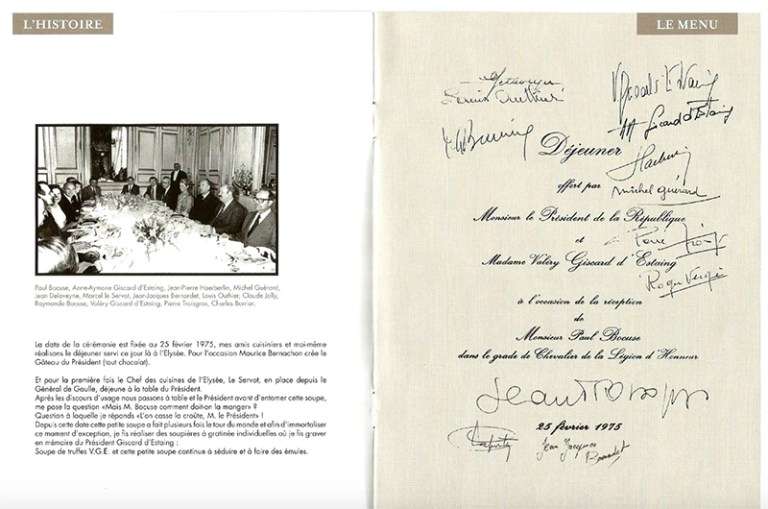 L'HISTOIRE
Paul Bocuse, Anne-Aymone Giscard d'Estaing, Jean-Pierre Haeberlin, Michel Guérard,
Jean Delaveyne, Marcel le Servot, Jean-Jacques Bernardet, Louis Outhier, Claude Jolly,
Raymonde Bocuse, Valéry Giscard d'Estaing, Pierre Troisgros, Charles Barrier.
La date de la cérémonie est fixée au 25 février 1975, mes amis cuisiniers et moi-même
réalisons le déjeuner servi ce jour là à l'Elysée. Pour l'occasion Maurice Bernachon crée le
Gâteau du Président (tout chocolat).
Et pour la première fois le Chef des cuisines de l'Elysée, Le Servot, en place depuis le
Général de Gaulle, déjeune à la table du Président.
Après les discours d'usage nous passons à table et le Président avant d'entamer cette soupe,
me pose la question «Mais M. Bocuse comment doit-on la manger» ?
Question à laquelle je réponds «L'on casse la croûte, M. le Président» !
Depuis cette date cette petite soupe a fait plusieurs fois le tour du monde et afin d'immortaliser
ce moment d'exception, je fis réaliser des soupières à gratinée individuelles où je fis graver
en mémoire du Président Giscard d'Estaing :
Soupe de truffes V.G.E. et cette petite soupe continue à séduire et à faire des émules.
LE MENU
Louis Outhier
Giscard d'Estaing
Déjeuner
offert par
Michel Guérard
Monsieur le Président de la République
et
Pierre
Madame Valéry Giscard d'Estaing
Roger Vergé
à l'occasion de la réception
de
Monsieur Paul Bocuse
dans le grade de Chevalier de la Légion d'Honneur
Jean Troisgros
25 février 1975
Jean Jacques